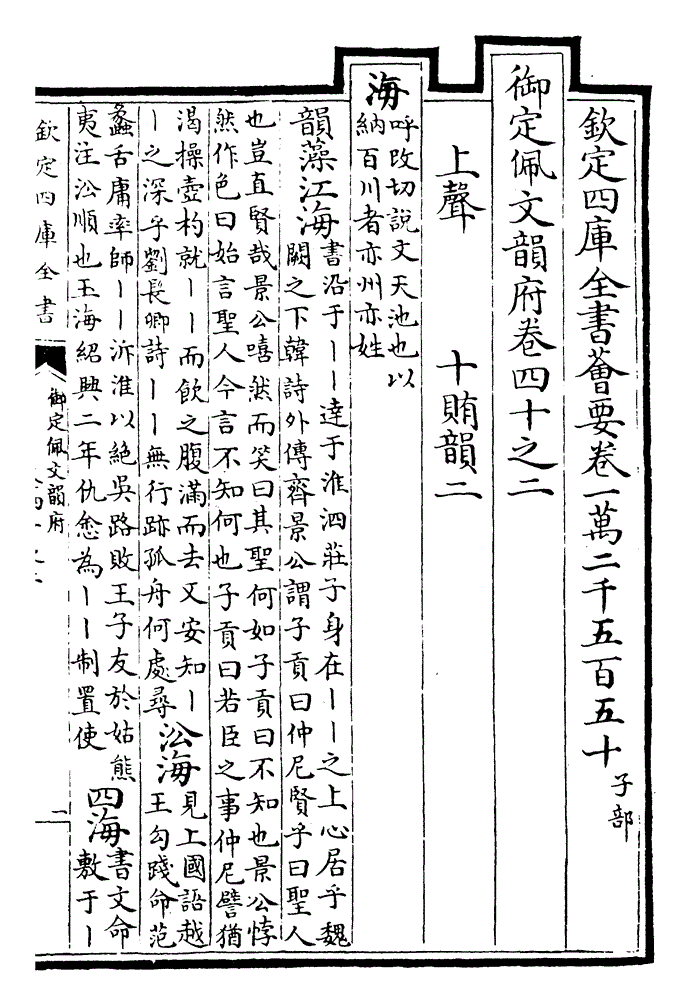 欽定四庫全書薈要卷一萬二千五百五十子部
御定佩文韻府卷四十之二
上聲 十賄韻二
海呼改切說文天池也以
納百川者亦州亦姓
韻藻江海書沿于丨丨達于淮泗莊子身在丨丨之上心居乎魏
闕之下韓詩外傳齊景公謂子貢曰仲尼賢乎曰聖人
也豈直賢哉景公嘻然而笑曰其聖何如子貢曰不知也景公悖
然作色曰始言聖人今言不知何也子貢曰若臣之事仲尼譬猶
渴操壺杓就丨丨而飲之腹滿而去又安知丨
丨之深乎劉長卿詩丨丨無行跡孤舟何處尋
㳂海見上國語越
王勾踐命范
蠡舌庸率師丨丨泝淮以絶吳路敗王子友於姑熊
夷注㳂順也玉海紹興二年仇悆為丨丨制置使
四海書文命
敷于丨
欽定四庫全書
御定佩文韻府
一